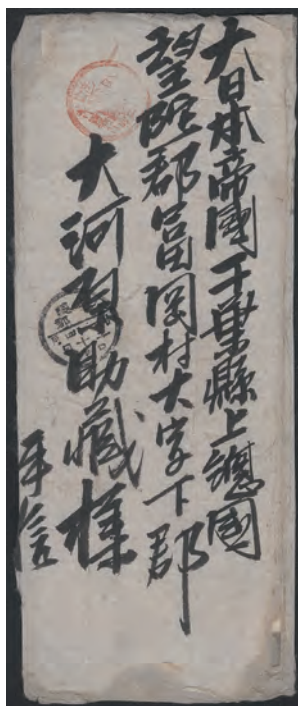 大日本帝國千葉縣上總國
望陀郡富岡村大字下郡
大河賀助藏様
平信